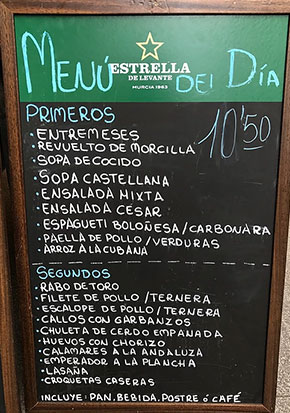 MENÚ
ESTRELLA
DE LEVANTE
MURCIA 1963
DEL DÍA
PRIMEROS
10'50
• ENTREMESES
• REVUELTO DE MORCILLA
• SOPA DE COCIDO
• SOPA CASTELLANA
• ENSALADA MIXTA
• ENSALADA CÉSAR
• ESPAGUETI BOLOÑESA/CARBONARA
• PAELLA DE POLLO/VERDURAS
• ARROZ A LA CUBANA
SEGUNDOS
• RABO DE TORO
• FILETE DE POLLO/TERNERA
• ESCALOPE DE POLLO/TERNERA
• CALLOS CON GARBANZOS
• CHULETA DE CERDO EMPANADA
• HUEVOS CON CHORIZO
• CALAMARES A LA ANDALUZA
• EMPERADOR A LA PLANCHA
• LASAÑA
• CROQUETAS CASERAS
INCLUYE: PAN, BEBIDA, POSTRE ó CAFÉ